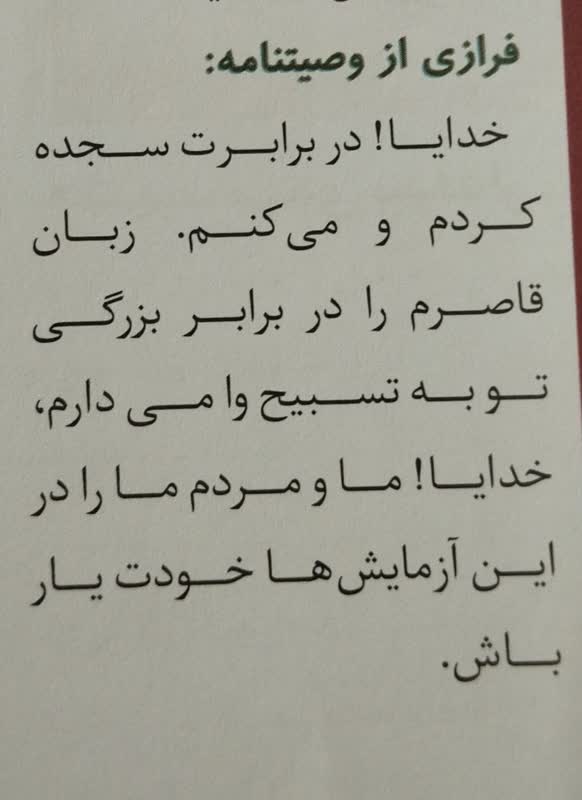 فرازی از وصیتنامه:
خدایا! در برابرت سجده
کردم و می‌کنم. زبان
قاصرم را در برابر بزرگی
تو به تسبیح وا می دارم،
خدایا! ما و مردم ما را در
این آزمایش‌ها خودت یار
باش.